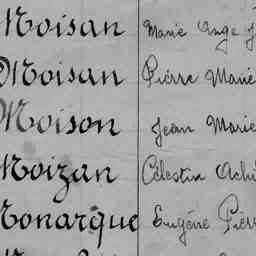 Moisan Marie Ange
Moisan Pierre Marie
Moison Jean Marie
Moizan Célestin
Monarque Eugène